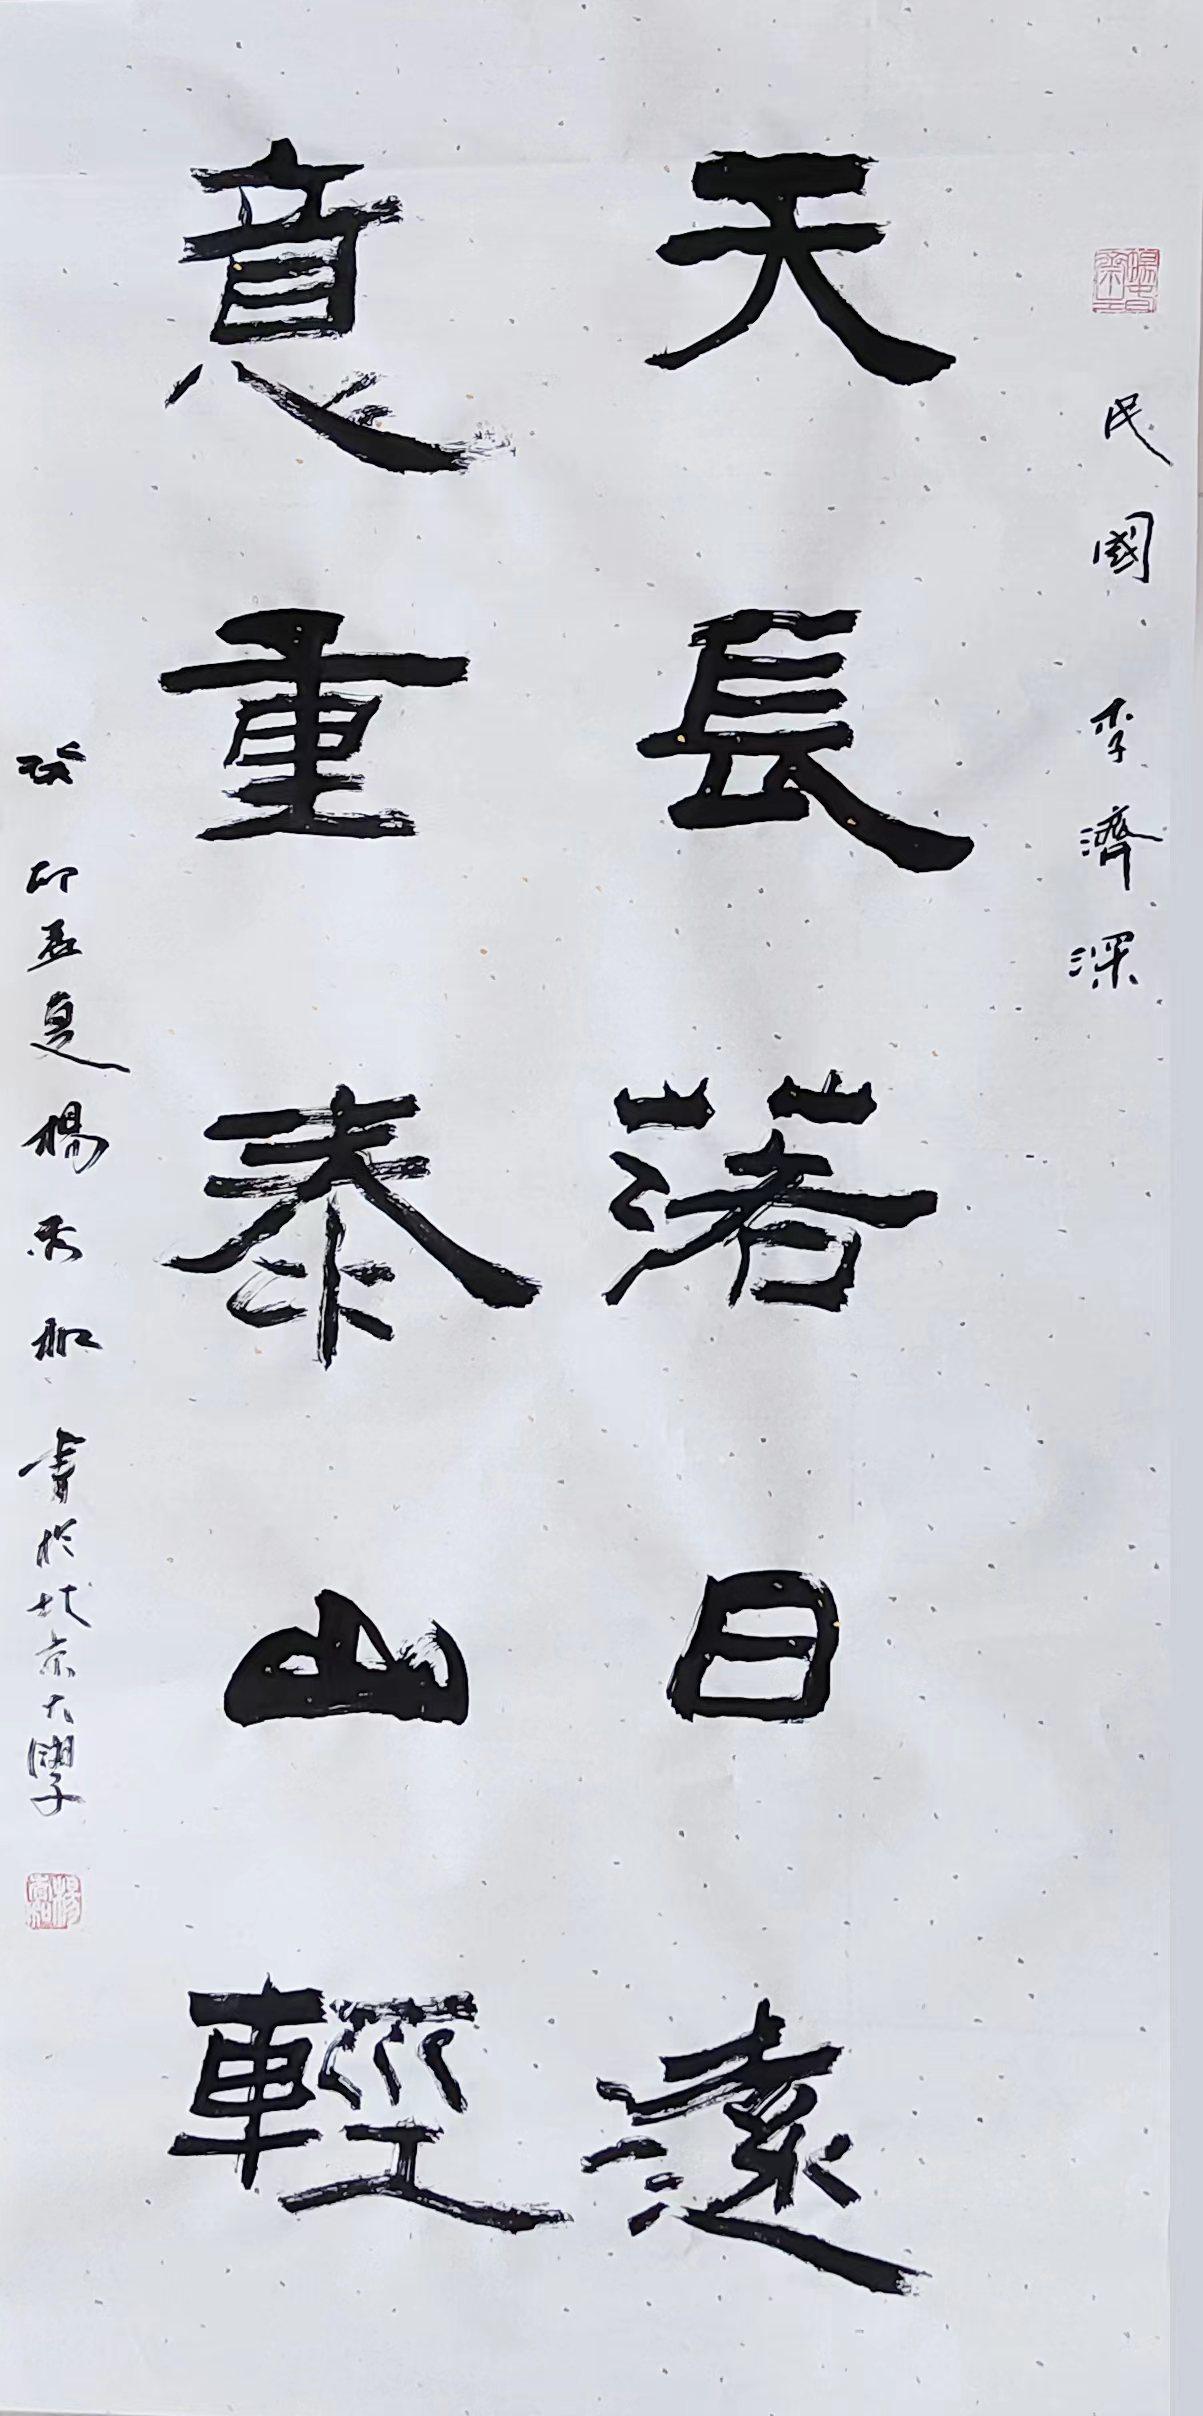 民國 李濟深
天長落日遠
意重泰山輕
癸卯孟夏楊秀和書於北京大學